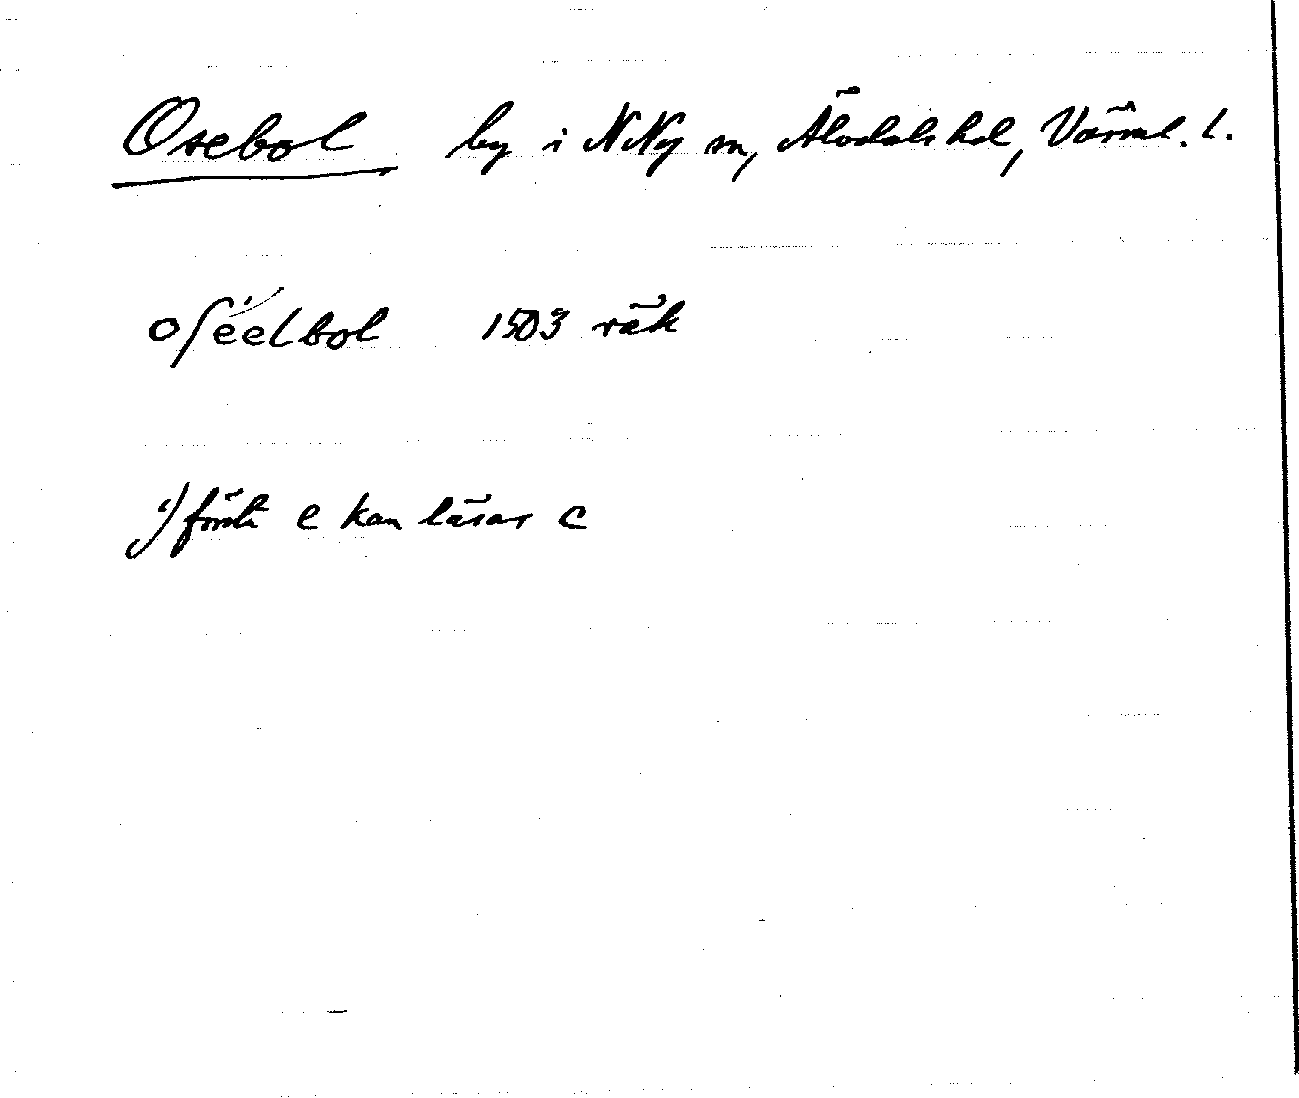 Osebol by i N Ny sn, Älvdals hd, Värml. l.
oſe¹⁾elbol 1503 räk
¹⁾ första e kan läsas c